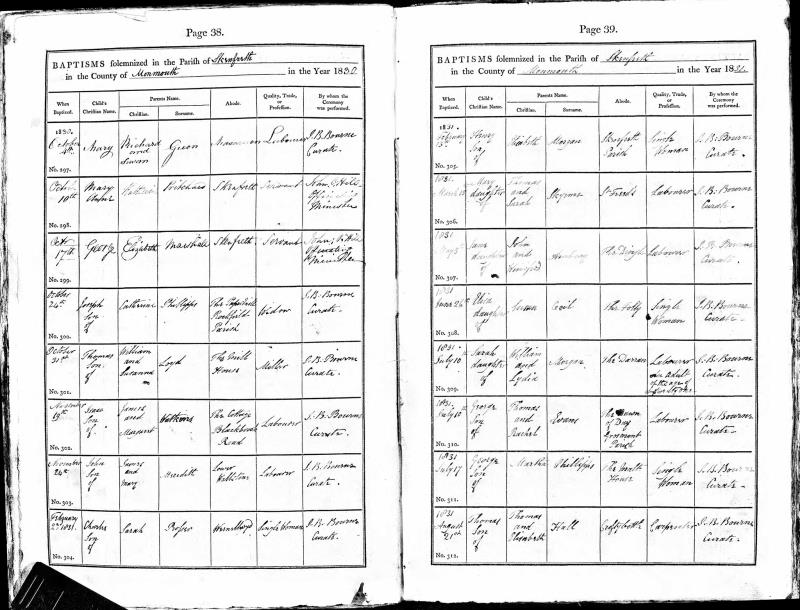 Page 38.
BAPTISMS solemnized in the Parish of Skenfreth
in the County of Monmouth in the Year 1830.
When Baptized.
Child's Christian Name.
Parents Name.
Christian.
Surname.
Abode.
Quality, Trade, or Profession.
By whom the Ceremony was performed.
1830.
October
Mary
Richard
and
Green
Labourer
J. B. Bourne
Curate.
No. 297.
October
10th
Mary
Pritchard
Skenfreth
Servant
John
Minister
No. 298.
Octr
17th
George
Elizabeth
Marshall
Skenfreth
Servant
John
No. 299.
October
24th
Joseph
Son
of
Catherine
Phillipps
Rockfield
Parish
Widow
J. B. Bourne
Curate.
No. 300.
October
31st
Thomas
Son
of
William
and
Susanna
Loyd
The Mill
House
Miller
J. B. Bourne
Curate.
No. 301.
November
Isaac
Son
of
James
and
Margaret
Watkins
The Cottage
Road
Labourer
J. B. Bourne
Curate.
No. 302.
November
24th
John
Son
of
James
and
Mary
Meredith
Lower
Labourer
J. B. Bourne
Curate.
No. 303.
February
2d 1831.
Charles
Son
of
Sarah
Prosser
Single Woman
J. B. Bourne
Curate.
No. 304.
Page 39.
BAPTISMS solemnized in the Parish of Skenfreth
in the County of Monmouth in the Year 1831.
When Baptized.
Child's Christian Name.
Parents Name.
Christian.
Surname.
Abode.
Quality, Trade, or Profession.
By whom the Ceremony was performed.
1831.
February
Henry
Son
of
Elizabeth
Morgan
Skenfreth
Parish
Single
Woman
J. B. Bourne
Curate.
No. 305.
1831.
March
Mary
daughter
of
Thomas
and
Sarah
Labourer
J. B. Bourne
Curate.
No. 306.
1831
Jane
daughter
of
John
and
The Dingle
Labourer
J. B. Bourne
Curate.
No. 307.
1831
June 26th
Eliza
daughter
of
Susan
Cecil
The Folly
Single
Woman
J. B. Bourne
Curate.
No. 308.
1831.
July 10
Sarah
daughter
of
William
and
Lydia
Morgan
The Darran
Labourer
an adult
of the age of
J. B. Bourne
Curate.
No. 309.
1831.
July 10
George
Son
of
Thomas
and
Rachel
Evans
of Day
Grosmont
Parish
Labourer
J. B. Bourne
Curate.
No. 310.
1831
July 17
George
Son
of
Martha
Phillipps
House
Single
Woman
J. B. Bourne
Curate.
No. 311.
1831
August
21st
Thomas
Son
of
Thomas
and
Elizabeth
Hall
Carpenter
J. B. Bourne
Curate.
No. 312.